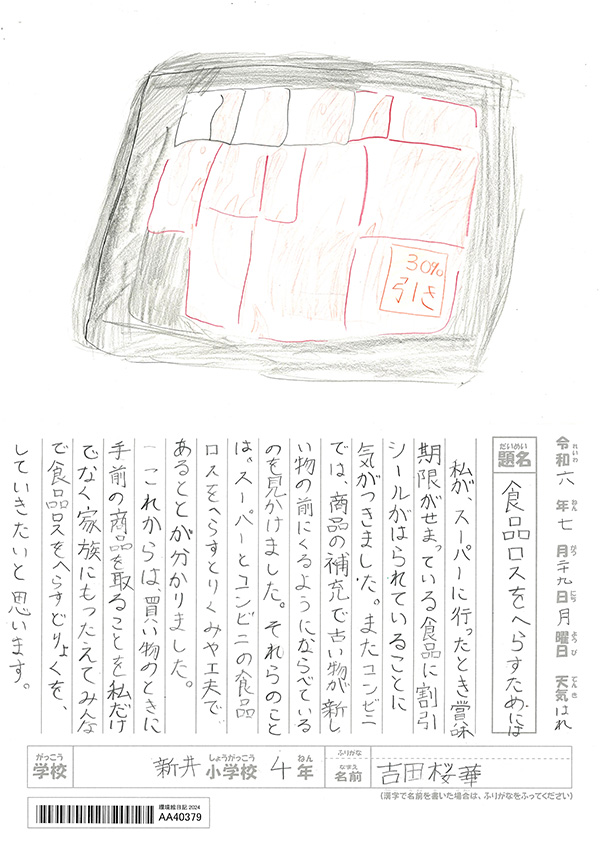 30%
引き
令和六年七月二十九日月曜日 天気はれ
題名 食品ロスをへらすためには
私が、スーパーに行ったとき賞味
期限がせまっている食品に割引
シールがはられていることに
気がつきました。またコンビニ
では、商品の補充で古い物が新し
い物の前にくるようにならべている
のを見かけました。それらのこと
は、スーパーとコンビニの食品
ロスをへらすとりくみや工夫で
あるととが分かりました。
これからは、買い物のときに
手前の商品を取ることを私だけ
でなく家族にもつたえてみんな
で食品ロスをへらすどりょくを、
していきたいと思います。
がっこう
学校 新井 小学校 4年
しょうがっこう ねん
ふりがな
なまえ
名前 吉田桜華
(漢字で名前を書いた場合は、ふりがなをふってください)
環境絵日記 2024
AA40379